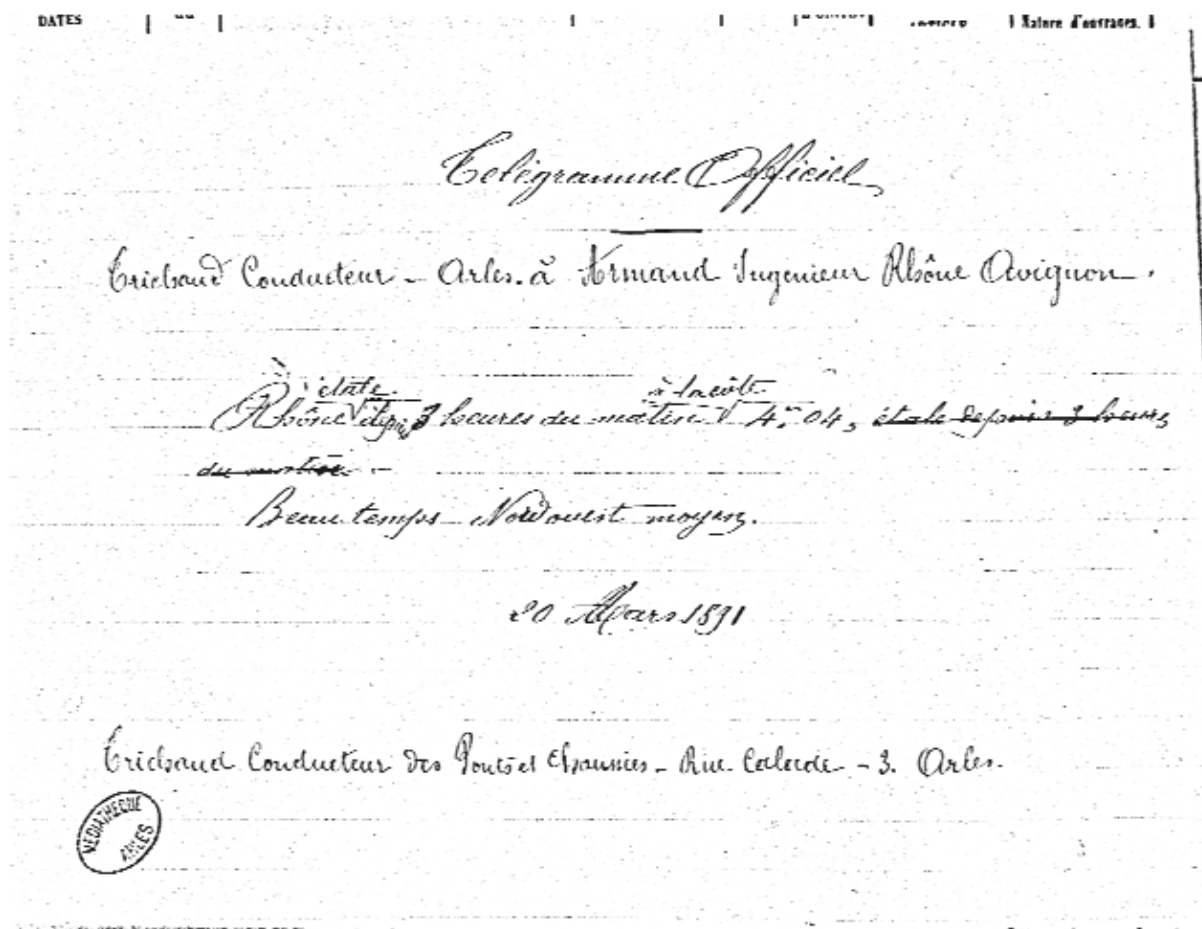 DATES du Nature d'ouvrages.
Télégramme Officiel
Trichaud Conducteur - Arles. à Armand Ingenieur Rhône Avignon.
étale à la côte
Rhône depuis 3 heures du matin 4.m 04, étale depuis 3 heures
du matin
Beau temps Nord ouest moyen.
20 Mars 1891
Trichaud Conducteur des Ponts et Chaussées - Rue - 3. Arles.
MEDIATHEQUE
ARLES